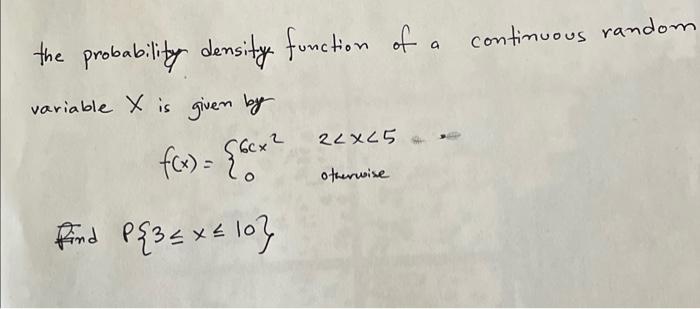 the probability density function of a continuous random
variable X is given by
f(x) = { 6cx² 2<x<5
0 otherwise
Find P{3 ≤ x ≤ 10}